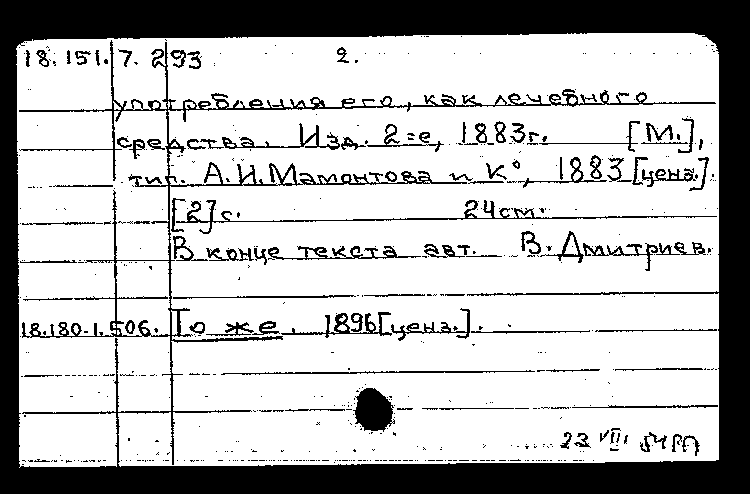 18.151.7.293 2.
употребления его, как лечебного
средства. Изд. 2=е, 1883г. [М.],
тип. А.И.Мамонтова и К°, 1883 [ценз.].
[2]с. 24см.
В конце текста авт. В. Дмитриев.
18.180.1.506. То же. 1896[ценз.].
23 VIII